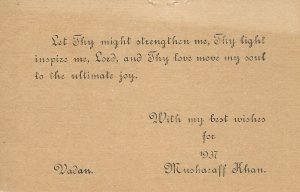 Let Thy might strengthen me, Thy light
inspire me, Lord, and Thy love move my soul
to the ultimate joy.
With my best wishes
for
1937
Vadan.
Musharaff Khan.